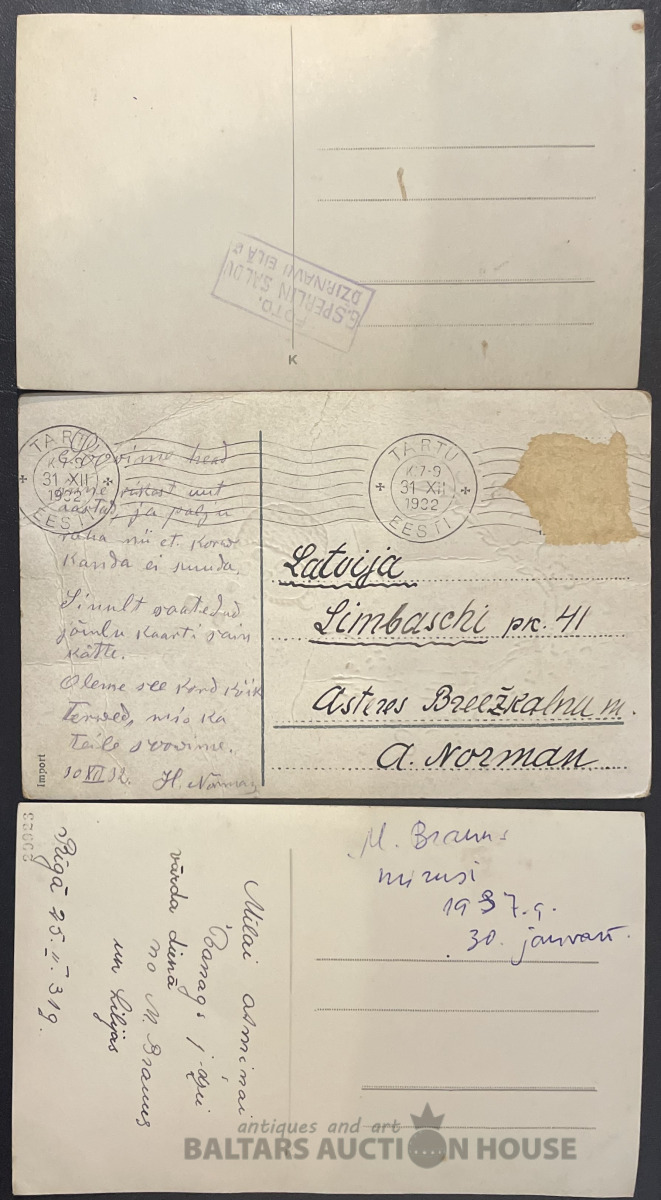 FOTO.
G. SPERLIN SALDU
DZIRNAVU IELĀ
K
TARTU
K.7-9
31 XII
1932
EESTI
TARTU
K.7-9
31 XII
1932
EESTI
Soovime head
uut
aastat, ja palju
raha nii et korw
Kanda ei suuda.
Sinult saatedud
jõulu kaarti sain
kätte.
Oleme see kord kõik
Terwed, mis ka
Teile soovime.
30 XII 32. H. Norman
Import
Latvija
Limbaschi pk. 41
Asteres Breežkalnu m.
A. Norman
20023
Milai atmiņai
j-dzei
vārda dienā
no M. Brams
un Lilijas
Rīgā 25. II. 31g.
M. Brams
mirusi
1937.g.
30. janvarī.
antiques and art
BALTARS AUCTION HOUSE